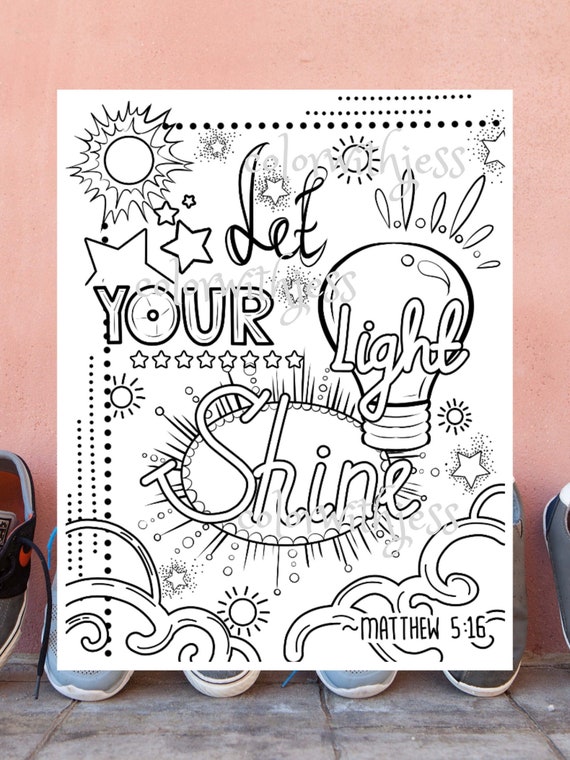 colorwithjess
Let
colorwithjess
YOUR
Light
Shine
colorwithjess
~MATTHEW 5:16